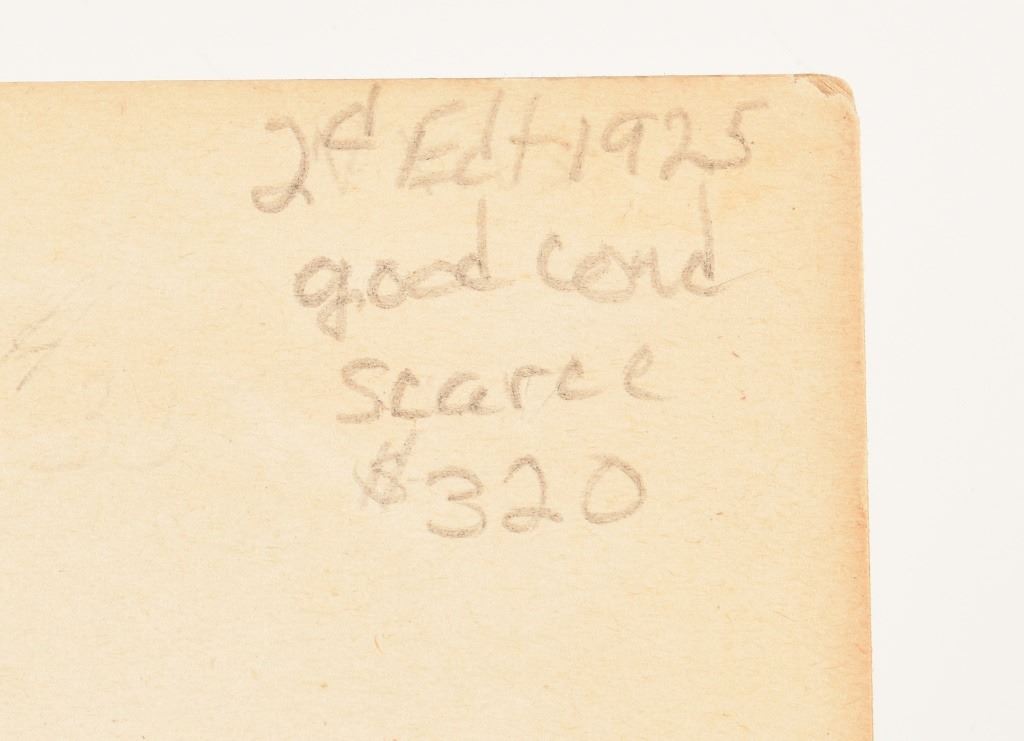 2d Edt 1925
good cond
scarce
$320